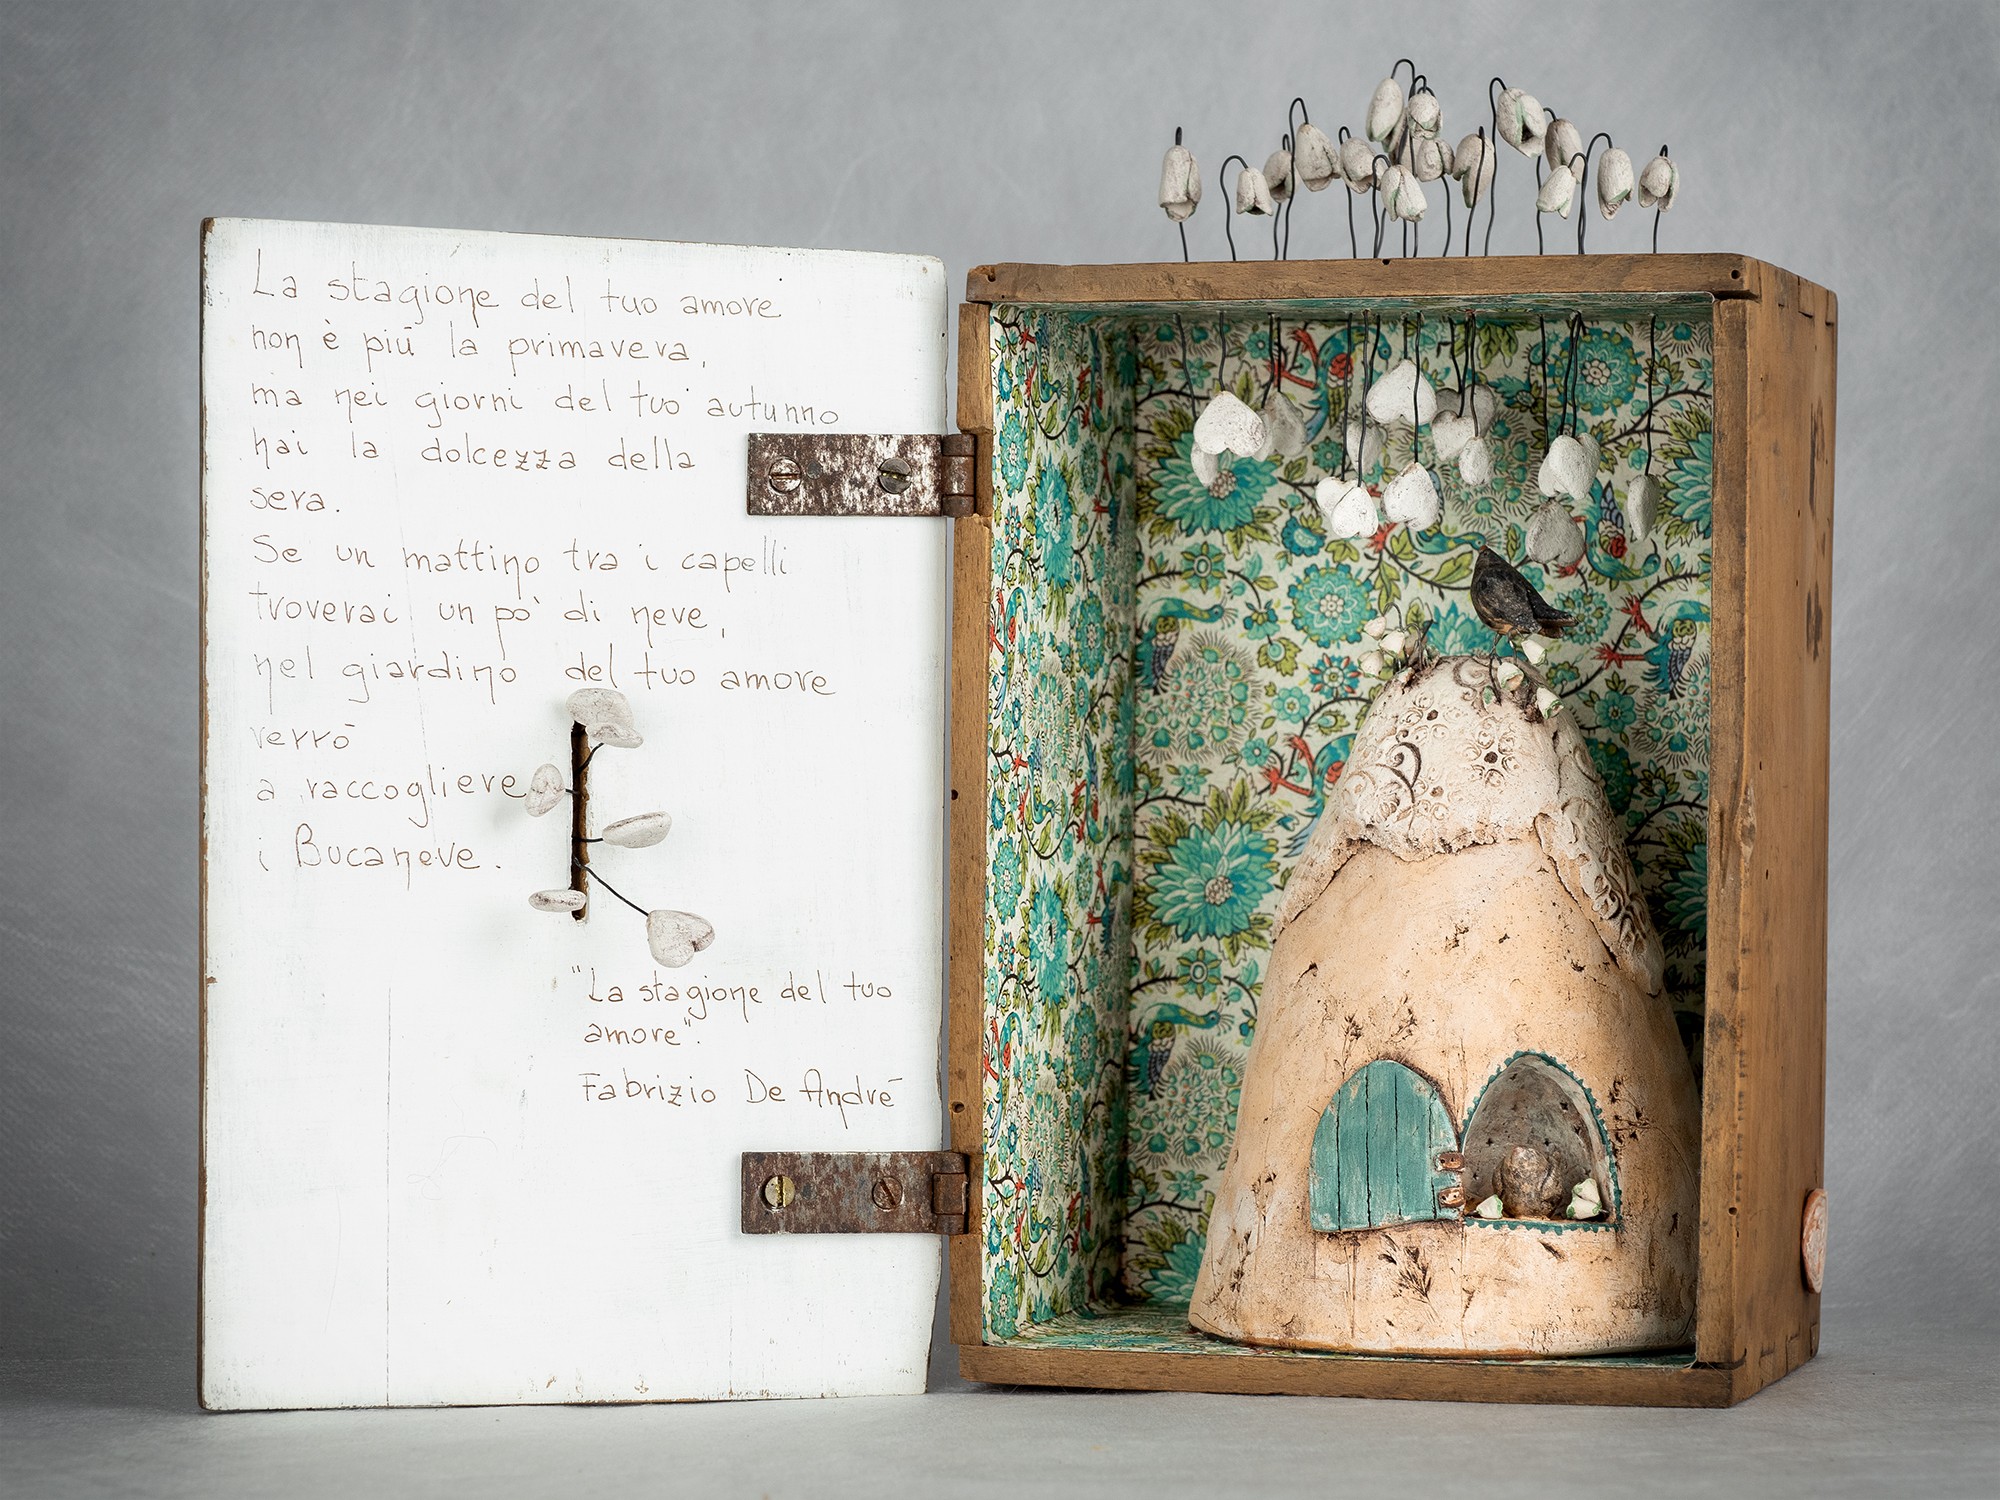 La stagione del tuo amore
non è più la primavera,
ma nei giorni del tuo autunno
hai la dolcezza della
sera.
Se un mattino tra i capelli
troverai un po' di neve,
nel giardino del tuo amore
verrò
a raccogliere
i Bucaneve.
"La stagione del tuo
amore".
Fabrizio De André